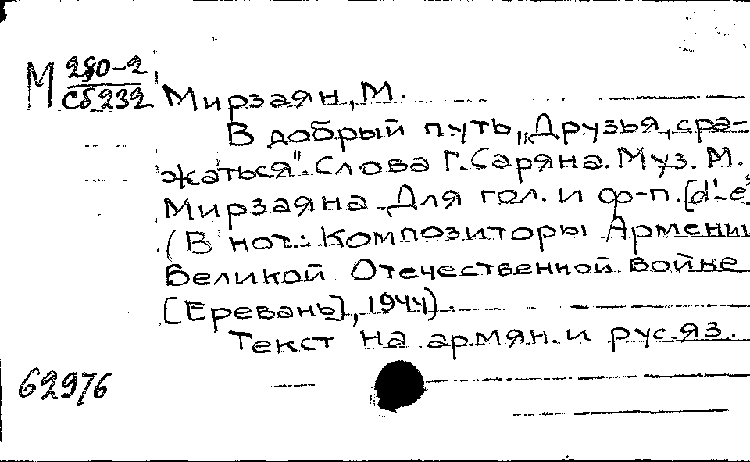 М 280-2
Сб232 Мирзаян, М.
В добрый путь, „Друзья, сра-
жаться". Слова Г. Саряна. Муз. М.
Мирзаяна. Для гол. и ф-п. [d'-e"
(В нот.: Композиторы Армении
Великой Отечественной войне
[Еревань], 1944).
Текст на армян. и рус. яз.
62976